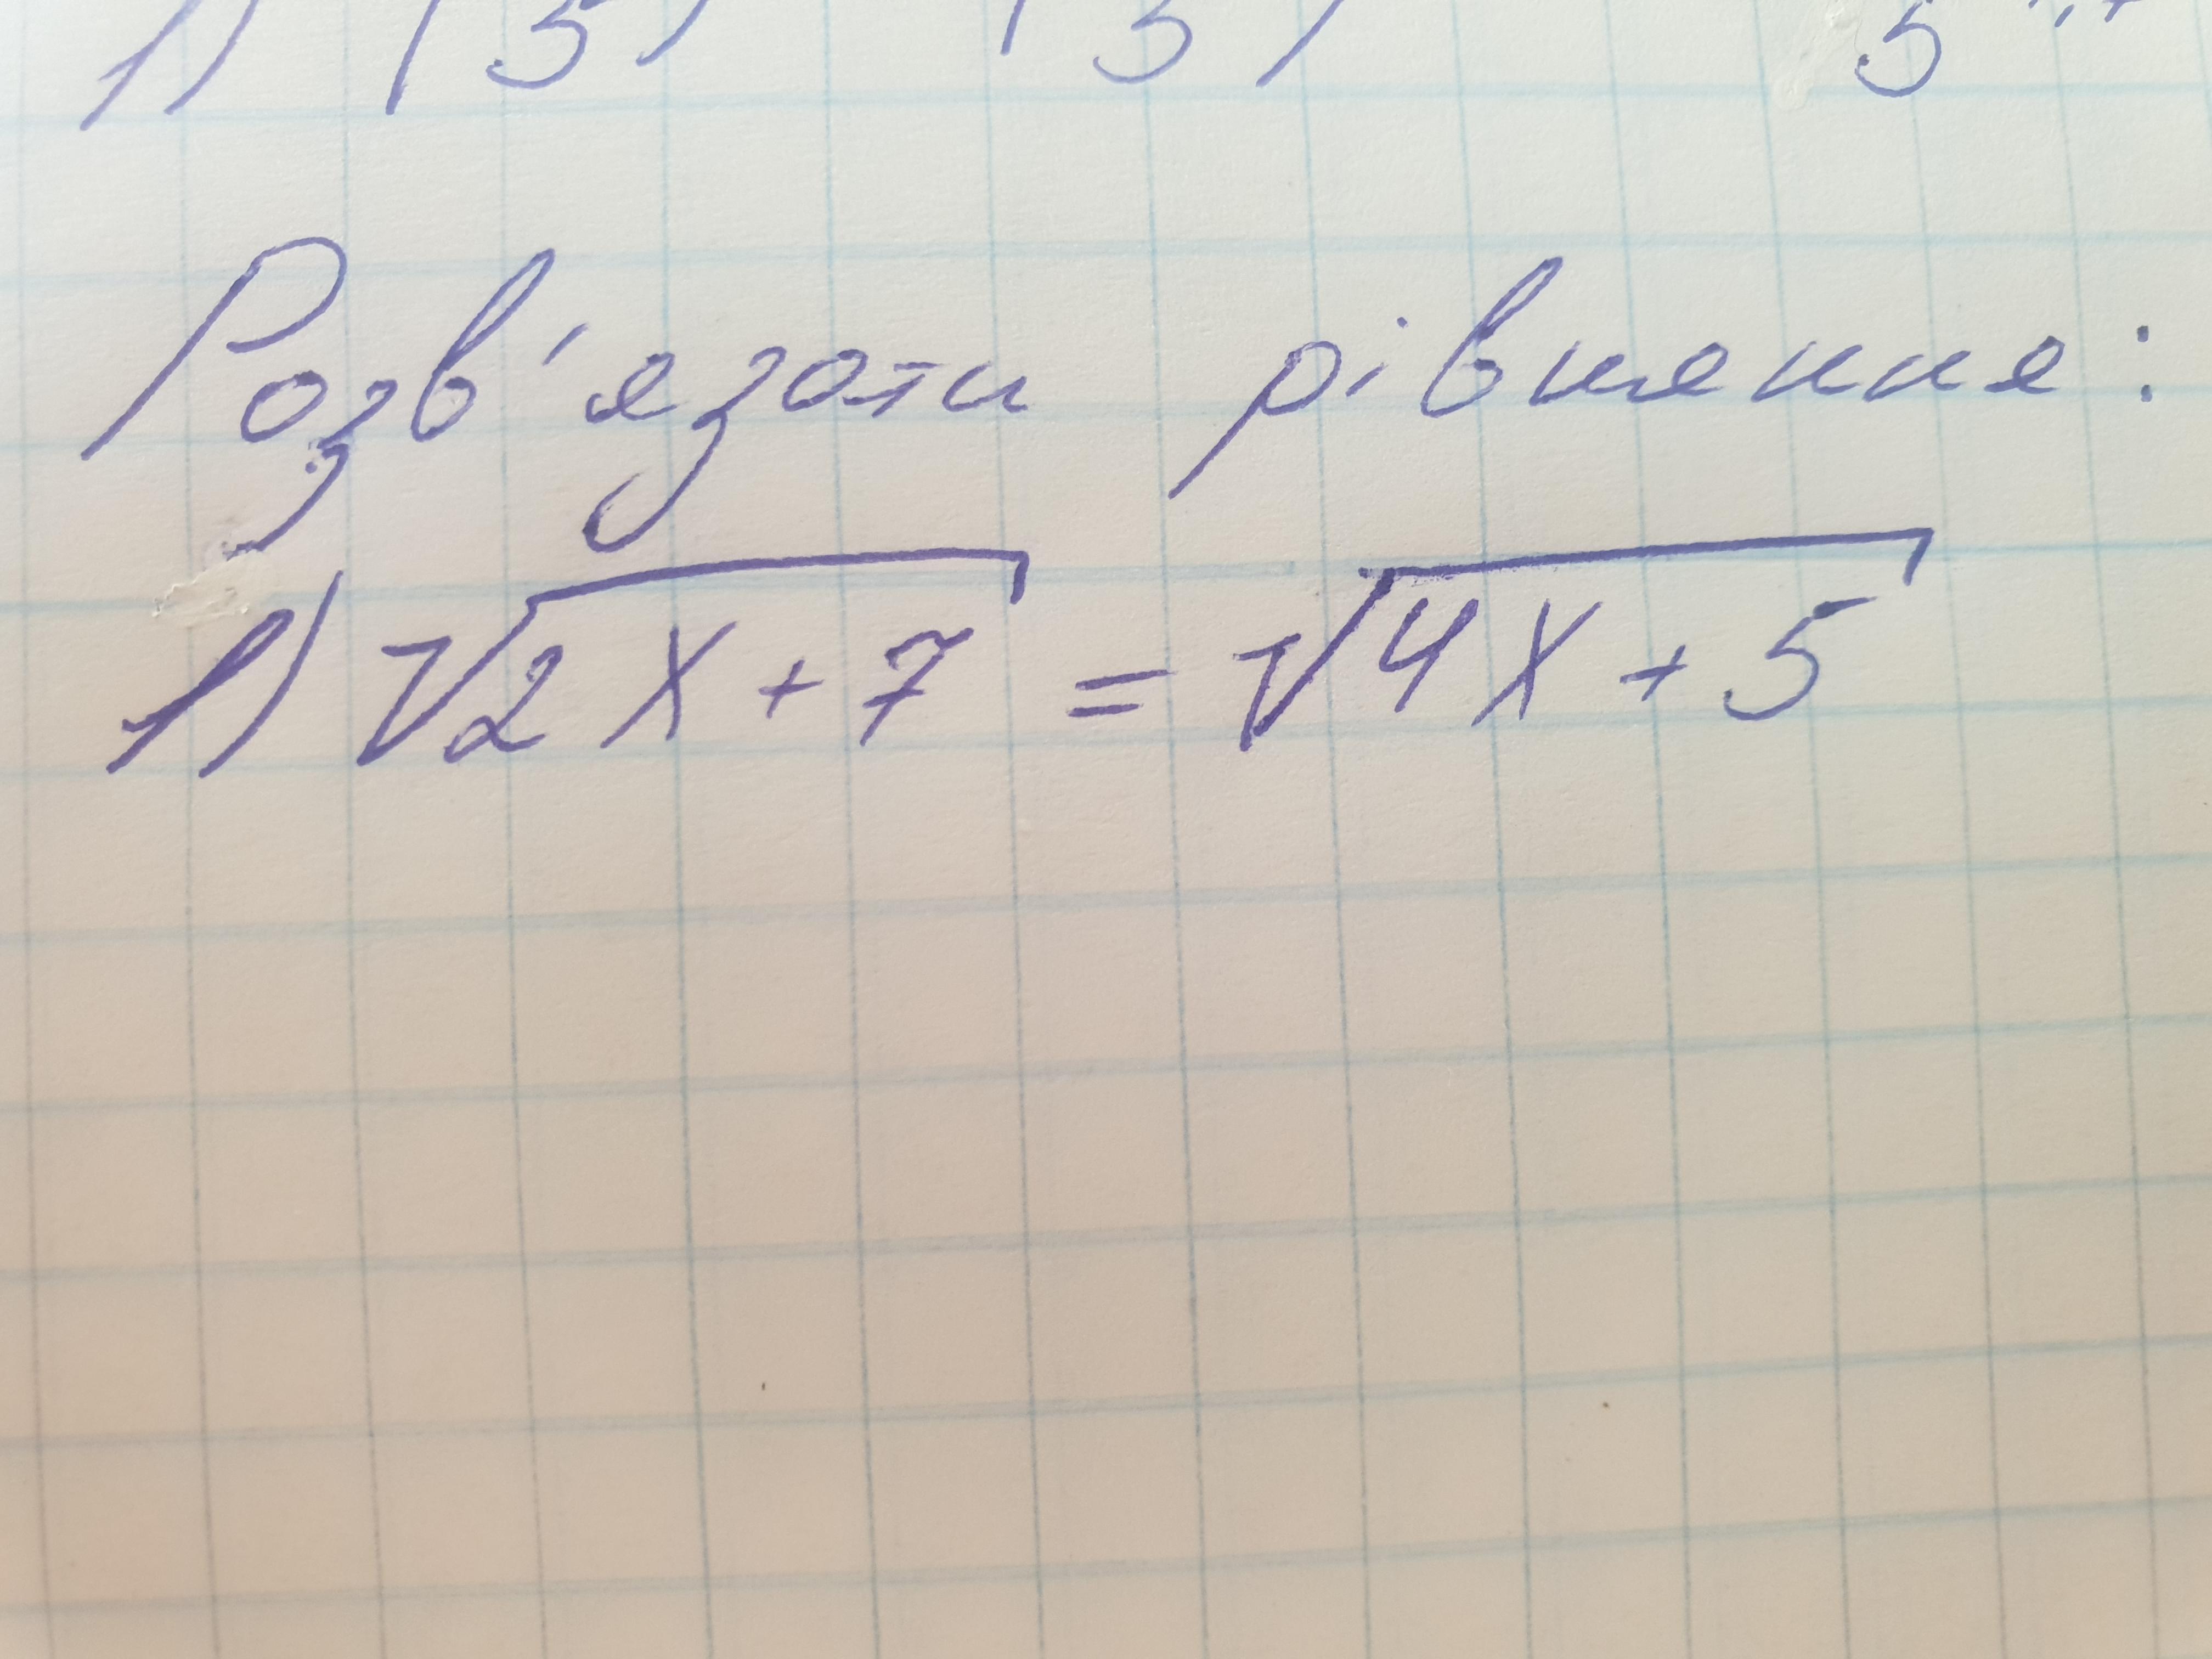 1) (5) (5) 5
Розв'язати рівняння:
1) √2x+7 = √4x+5